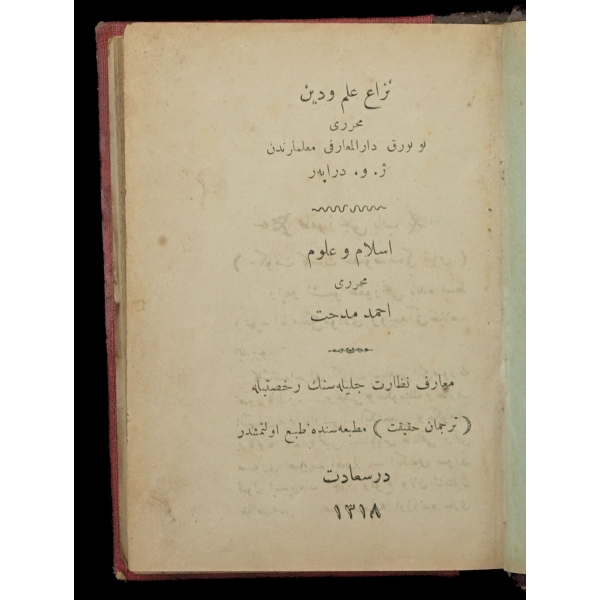 نزاع علم ودین
محرری
نویورق دارالمعارفی معلملرندن
ژ. و. دراپەر
اسلام و علوم
محرری
احمد مدحت
معارف نظارت جلیله‌سنك رخصتیله
( ترجمان حقیقت ) مطبعه‌سنده طبع اولنمشدر
درسعادت
١٣١٨